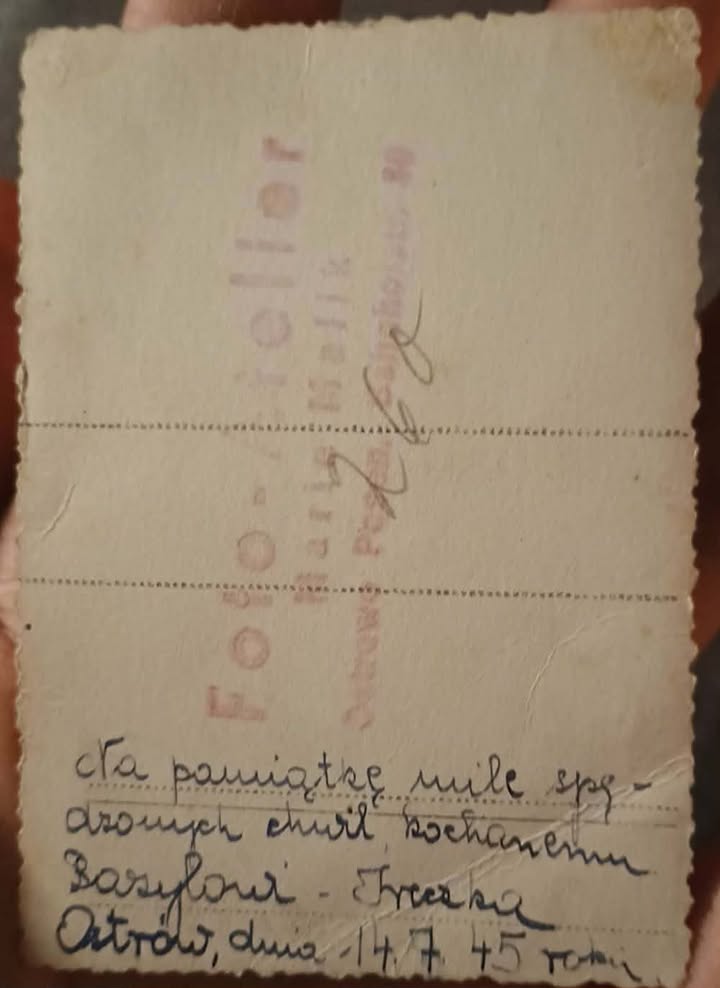 Foto-Atelier
Maria Malik
Ostrowo Posen, 80
260
Na pamiątkę mile spę-
dzonych chwil, kochanemu
Bazylowi - Ireczka
Ostrów, dnia 14.7.45 roku.